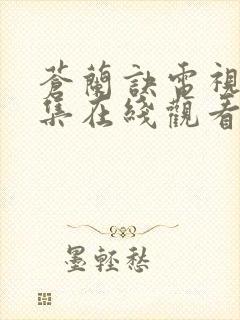 蒼蘭訣電視
集在綫觀看
墨輕愁